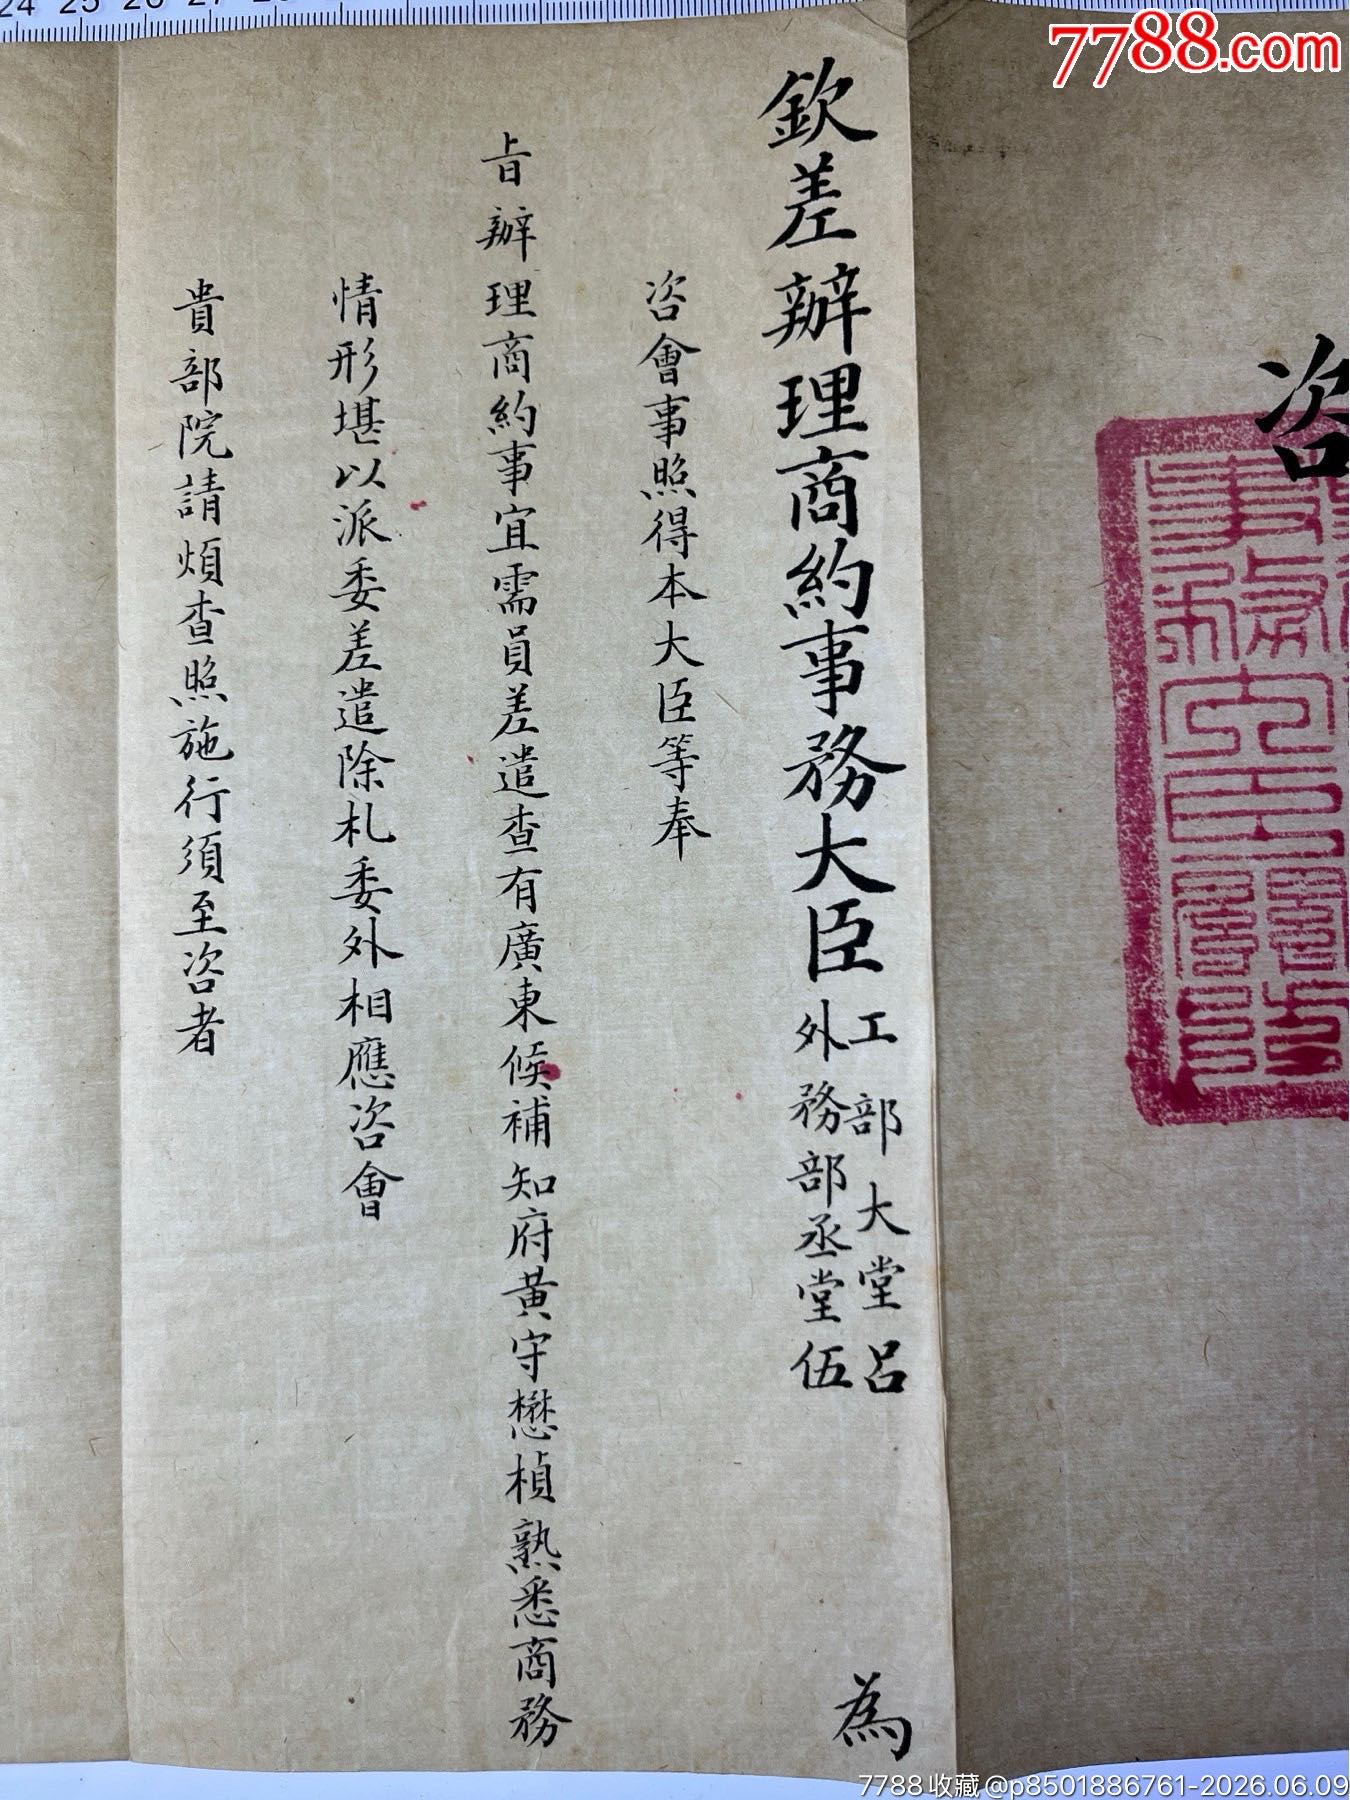 咨
欽差辦理商約事務大臣工部大堂呂外務部丞堂伍為
咨會事照得本大臣等奉
旨辦理商約事宜需員差遣查有廣東候補知府黃守懋楨熟悉商務
情形堪以派委差遣除札委外相應咨會
貴部院請煩查照施行須至咨者
24 25 26 27 28
7788.com
7788收藏@p8501886761-2026.06.09